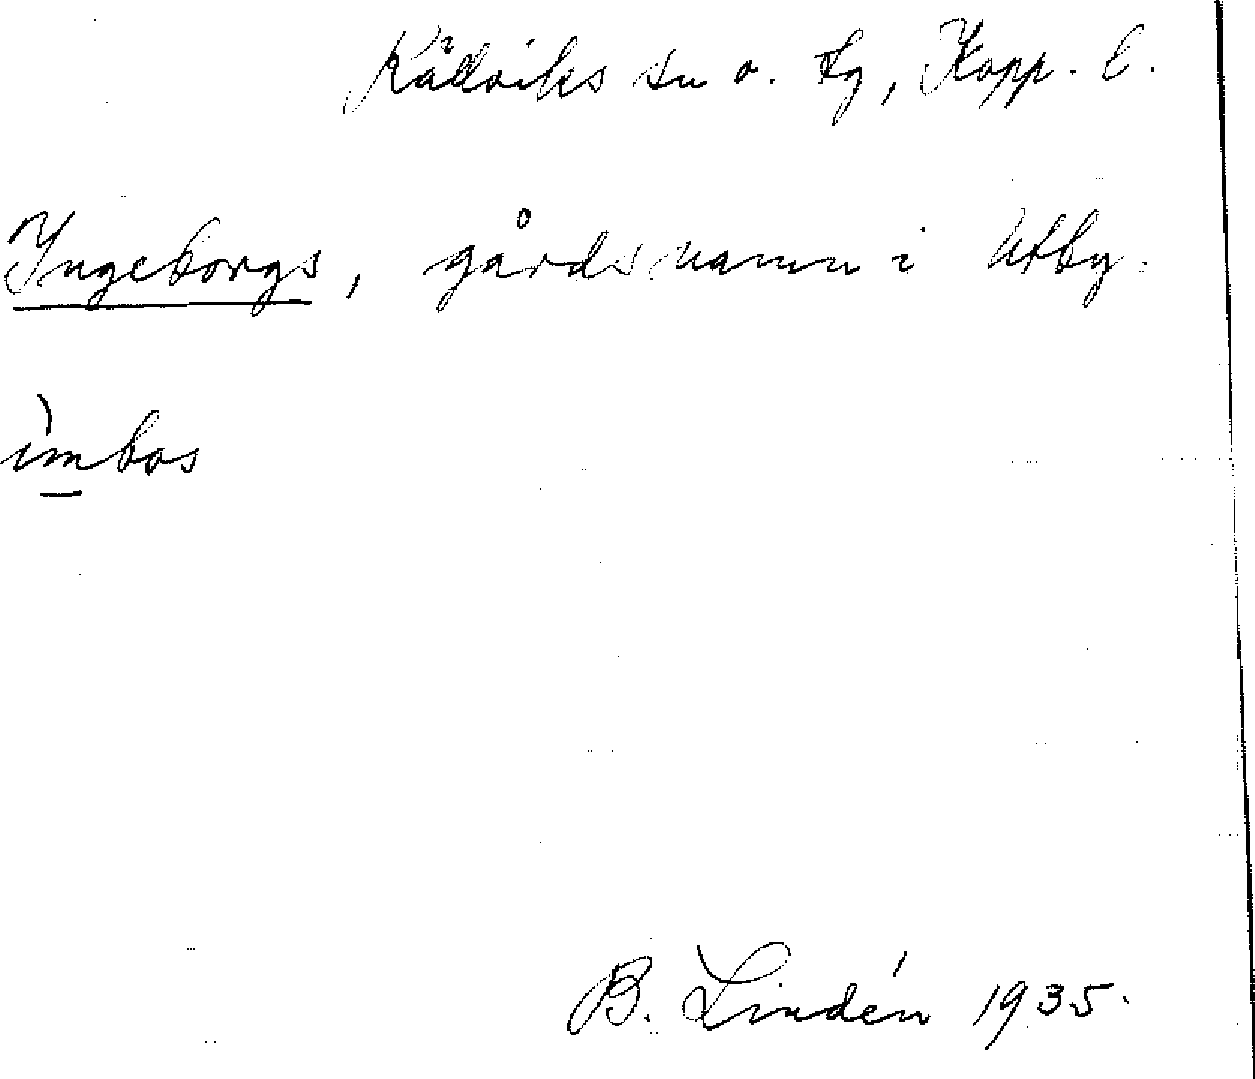 Rättviks sn o. tg, Kopp. l.
Ingeborgs, gårdsnamn i Utby.
ìmbos
B. Lindén 1935.